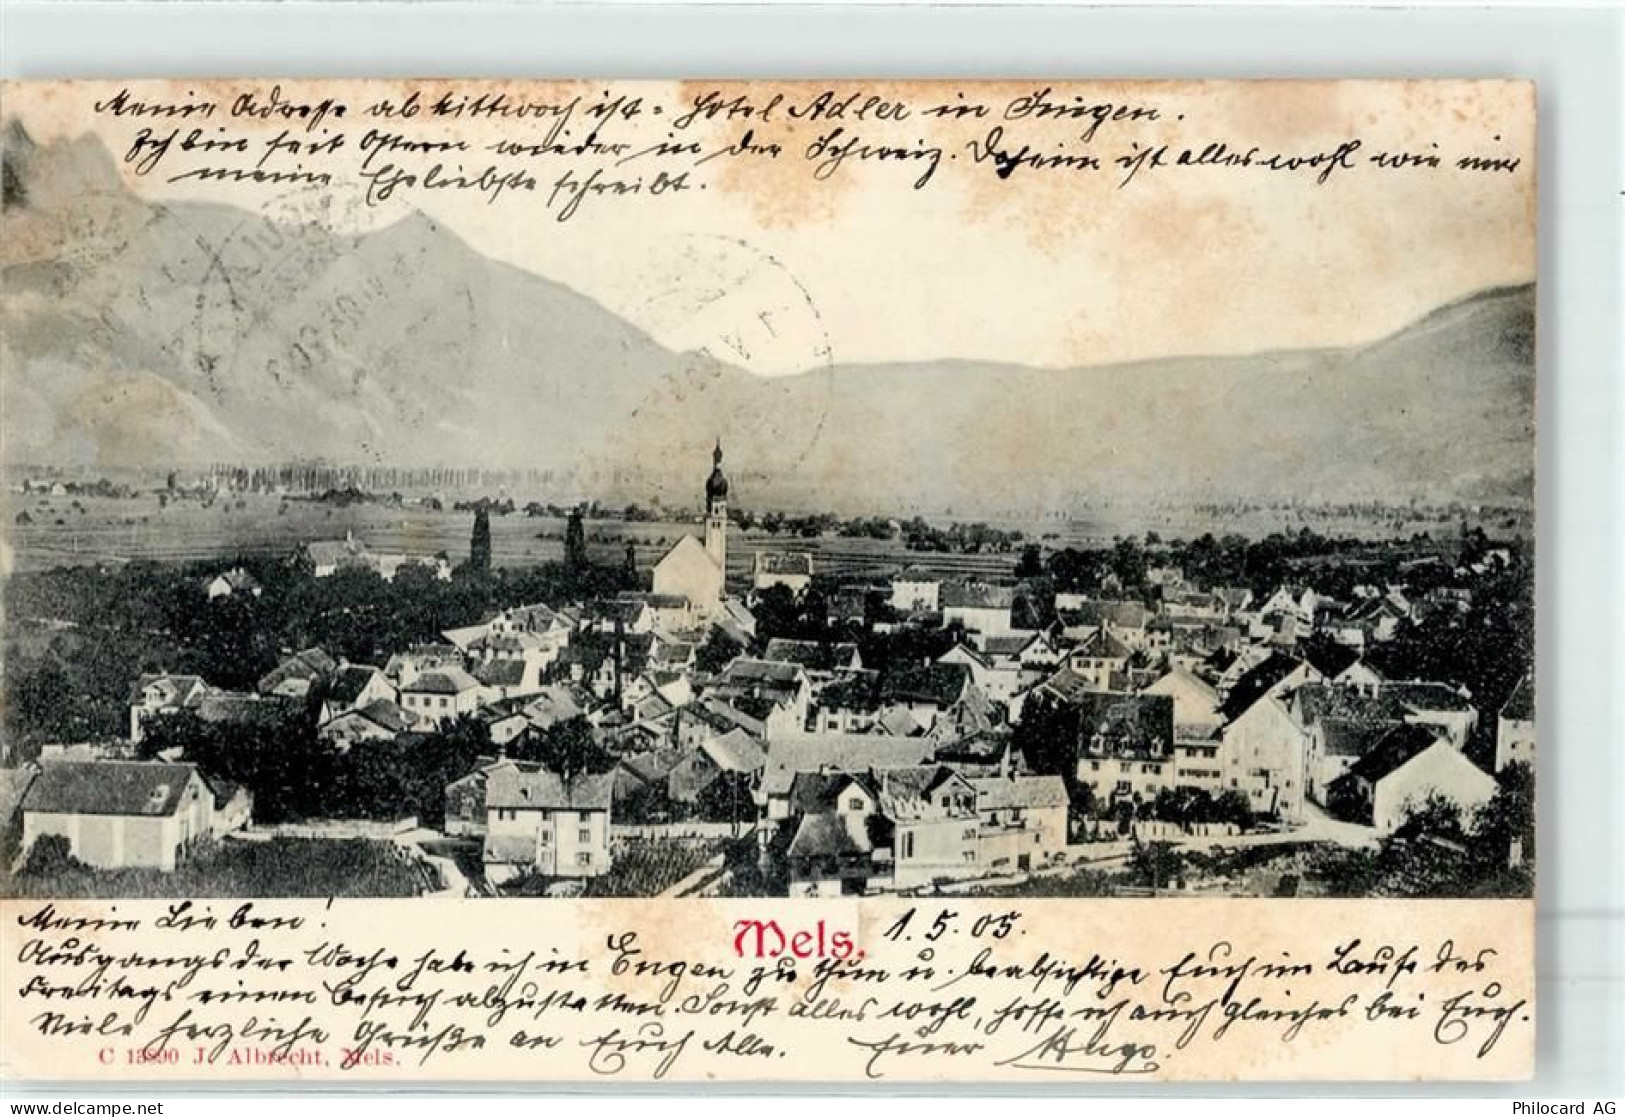 Meine Adresse ab Mittwoch ist: Hotel Adler in Singen.
Ich bin seit Ostern wieder in der Schweiz. Daheim ist alles wohl wie mir
meine Eheliebste schreibt.
Meine Lieben!
Mels.
1.5.05.
Ausgangs der Woche habe ich in Engen zu thun u. beabsichtige Euch im Laufe des
Freitags einen Besuch abzustatten. Sonst alles wohl, hoffe ich auch gleiches bei Euch.
Viele herzliche Grüße an Euch Alle. Euer Hugo.
C 13890 J. Albrecht, Mels.
Philocard AG